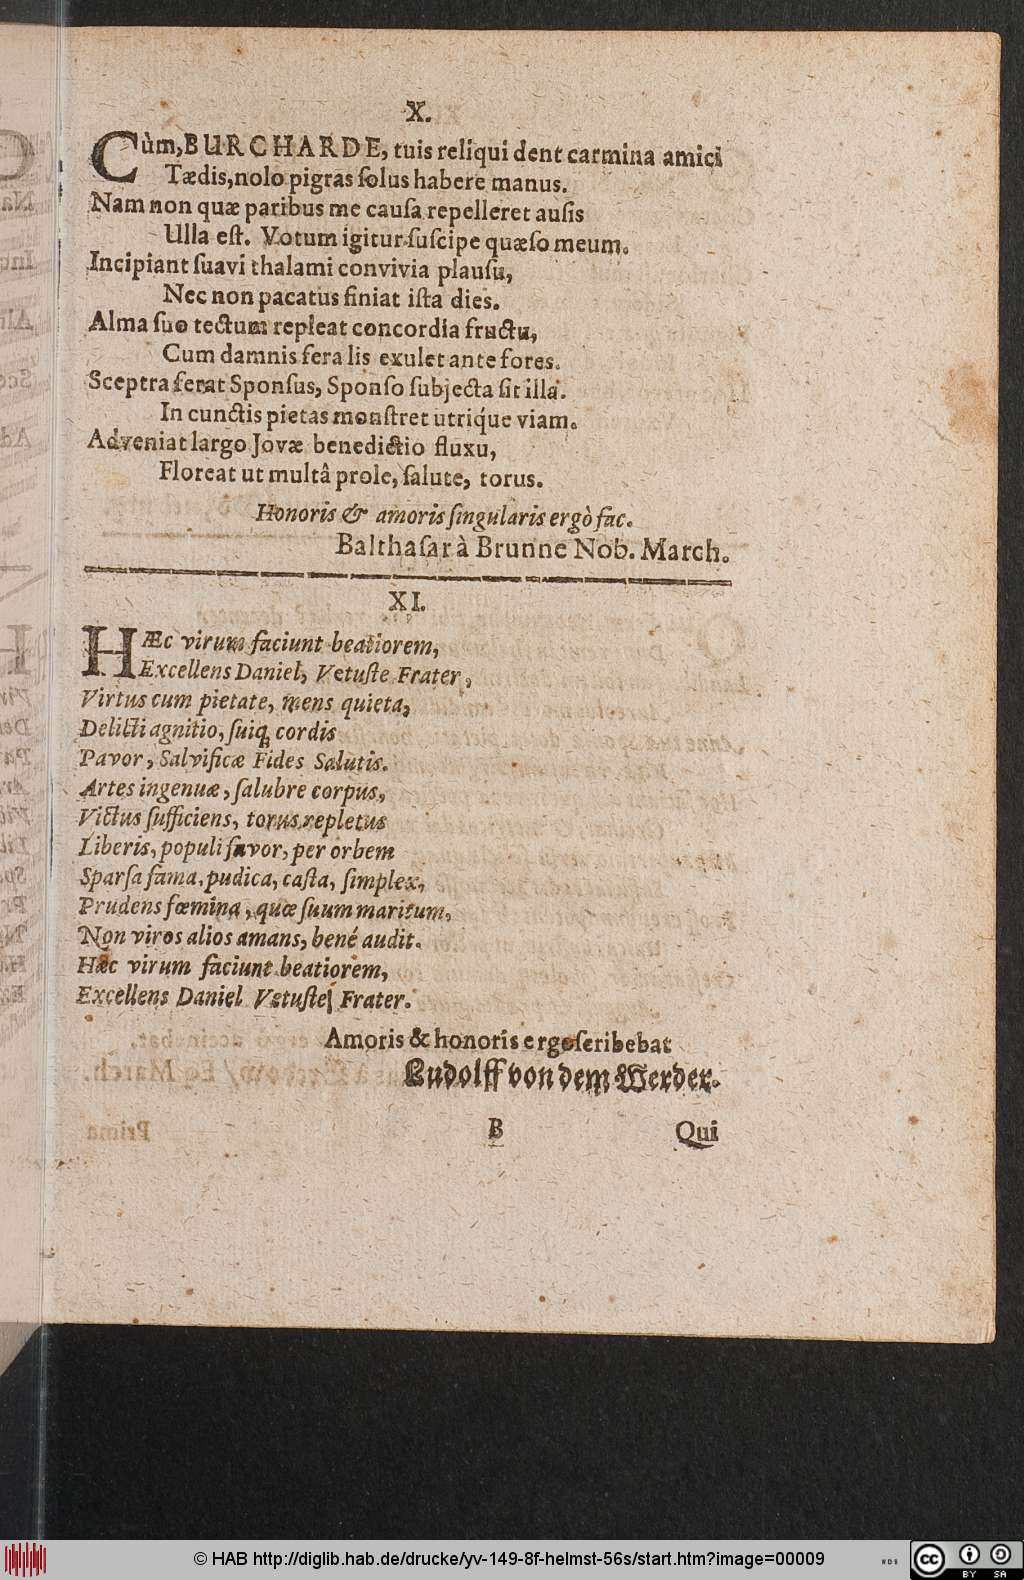 X.
Cùm, BURCHARDE, tuis reliqui dent carmina amici
Tædis, nolo pigras ſolus habere manus.
Nam non quæ paribus me cauſa repelleret auſis
Ulla eſt. Votum igitur ſuſcipe quæſo meum.
Incipiant ſuavi thalami convivia plauſu,
Nec non pacatus finiat iſta dies.
Alma ſuo tectum repleat concordia fructu,
Cum damnis fera lis exulet ante fores.
Sceptra ferat Sponſus, Sponſo ſubjecta ſit illa.
In cunctis pietas monſtret utriq́ue viam.
Adveniat largo Jovæ benedictio fluxu,
Floreat ut multâ prole, ſalute, torus.
Honoris & amoris ſingularis ergò fac.
Balthaſar à Brunne Nob. March.
XI.
HÆc virum faciunt beatiorem,
Excellens Daniel, Vetuſte Frater,
Virtus cum pietate, mens quieta,
Delicti agnitio, ſuiq; cordis
Pavor, Salvificæ Fides Salutis.
Artes ingenuæ, ſalubre corpus,
Victus ſufficiens, torus repletus
Liberis, populi favor, per orbem
Sparſa fama, pudica, caſta, ſimplex,
Prudens fœmina, quæ ſuum maritum,
Non viros alios amans, bené audit.
Hæc virum faciunt beatiorem,
Excellens Daniel Vetuſte, Frater.
Amoris & honoris ergo ſcribebat
Ludolff von dem Werder.
B Qui
Prima
© HAB http://diglib.hab.de/drucke/yv-149-8f-helmst-56s/start.htm?image=00009
WDB
cc BY SA